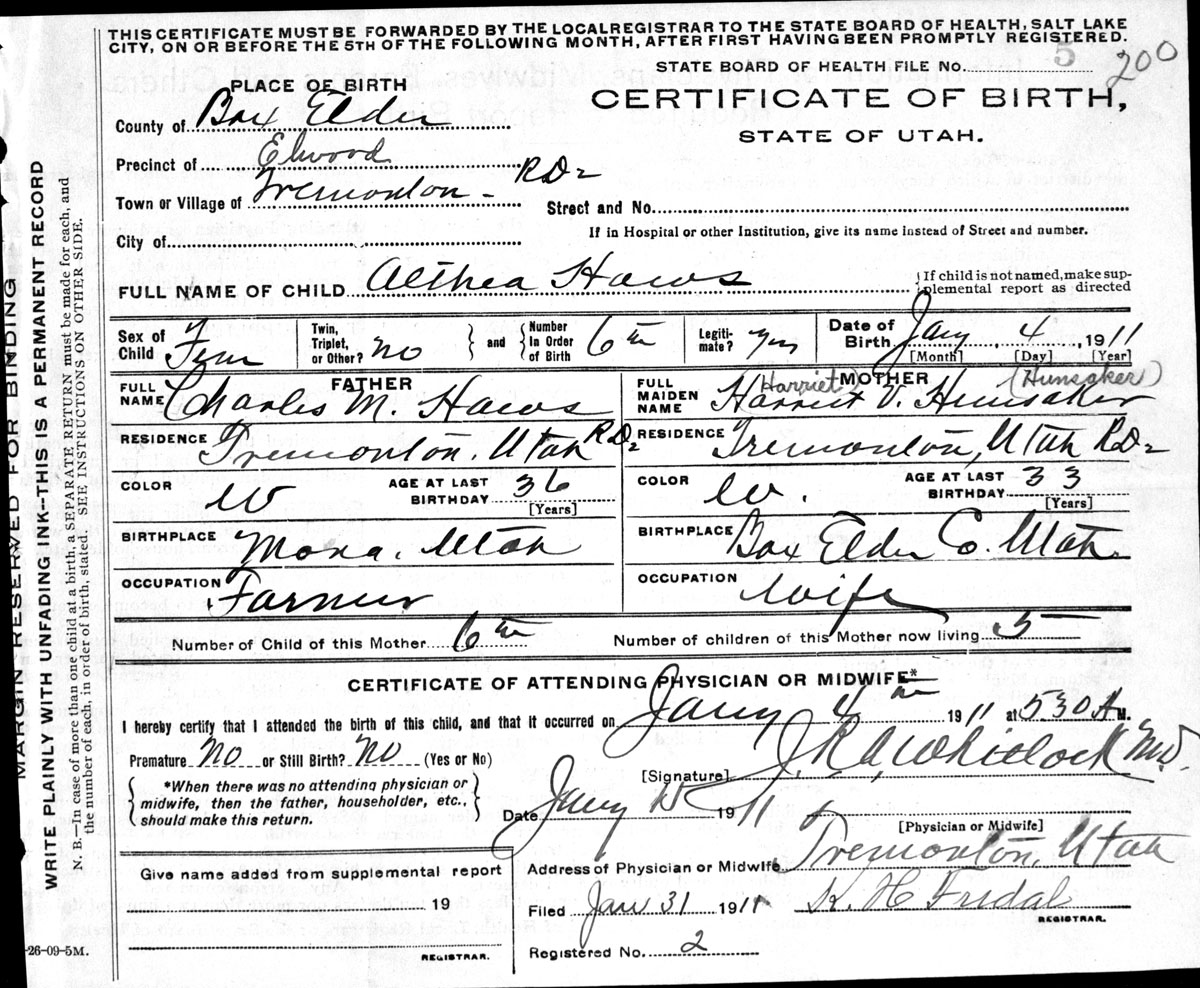 THIS CERTIFICATE MUST BE FORWARDED BY THE LOCAL REGISTRAR TO THE STATE BOARD OF HEALTH, SALT LAKE
CITY, ON OR BEFORE THE 5TH OF THE FOLLOWING MONTH, AFTER FIRST HAVING BEEN PROMPTLY REGISTERED.
STATE BOARD OF HEALTH FILE No. 5 200
PLACE OF BIRTH
CERTIFICATE OF BIRTH,
STATE OF UTAH.
County of Box Elder
Precinct of Elwood
Town or Village of Tremonton - RD2
Street and No.
City of
If in Hospital or other Institution, give its name instead of Street and number.
FULL NAME OF CHILD Althea Haws
{If child is not named, make supplemental report as directed
Sex of Child Fem
Twin, Triplet, or Other? No } and { Number In Order of Birth 6th
Legitimate? Yes
Date of Birth Jany 4, 1911
[Month] [Day] [Year]
FATHER
FULL NAME Charles M. Haws
RESIDENCE Tremonton. Utah RD2
COLOR W
AGE AT LAST BIRTHDAY 36
[Years]
BIRTHPLACE Mona. Utah
OCCUPATION Farmer
MOTHER
(Harriet) (Hunsaker)
FULL MAIDEN NAME Harriet V. Hunsaker
RESIDENCE Tremonton, Utah RD2
COLOR W.
AGE AT LAST BIRTHDAY 33
[Years]
BIRTHPLACE Box Elder Co. Utah.
OCCUPATION Wife
Number of Child of this Mother 6th
Number of children of this Mother now living 5
CERTIFICATE OF ATTENDING PHYSICIAN OR MIDWIFE*
I hereby certify that I attended the birth of this child, and that it occurred on Jany 4th 1911 at 530 A M.
Premature No or Still Birth? No (Yes or No)
{ *When there was no attending physician or midwife, then the father, householder, etc., should make this return. }
[Signature] Whitlock MD.
Date Jany 1911
[Physician or Midwife]
Address of Physician or Midwife Tremonton, Utah
Give name added from supplemental report
19
REGISTRAR.
Filed Jan 31 1911 K. H. Fridal
REGISTRAR.
Registered No. 2
-26-09-5M.
MARGIN RESERVED FOR BINDING
WRITE PLAINLY WITH UNFADING INK--THIS IS A PERMANENT RECORD
N. B.—In case of more than one child at a birth, a SEPARATE RETURN must be made for each, and
the number of each, in order of birth, stated. SEE INSTRUCTIONS ON OTHER SIDE.